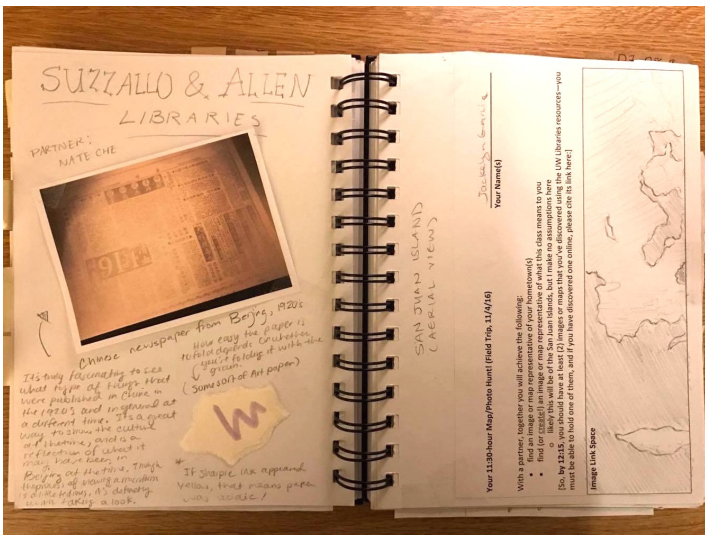 SUZZALLO & ALLEN
LIBRARIES
PARTNER:
NATE CHE
Chinese newspaper from Beijing, 1920s
It's truly fascinating to see
what type of things that
were published in China in
the 1920's and in general at
a different time. It's a great
way to show the culture
at the time, and is a
reflection of what it
may have been in
Beijing at the time. Though
the process of viewing a microfilm
is a little tedious, it's definitely
worth taking a look.
How easy the paper is
to fold depends on whether
you're folding it with the
grain.
(Some sort of Art paper)
* If sharpie ink appeared
yellow, that means paper
was acidic!
SAN JUAN ISLAND
(AERIAL VIEW)
Your Name(s)
Your 11:30-hour Map/Photo Hunt! (Field Trip, 11/4/16)
With a partner, together you will achieve the following:
• find an image or map representative of your hometown(s)
• find (or create!) an image or map representative of what this class means to you
o likely this will be of the San Juan Islands, but I make no assumptions here
[So, by 12:15, you should have at least (2) images or maps that you've discovered using the UW Libraries resources—you
must be able to hold one of them, and if you have discovered one online, please cite its link here:]
Image Link Space